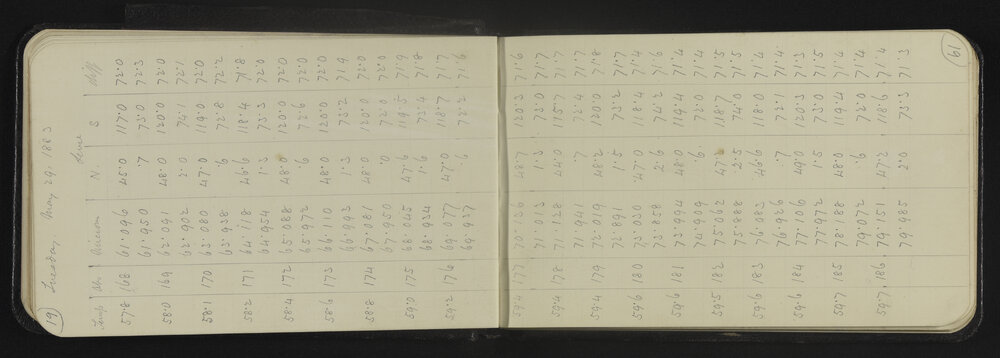 19 Tuesday May 29, 1883
Level
Temp Div N. S Diff
57.8 168 61.096 45.0 117.0 72.0
61.950 .7 73.0 72.3
58.0 169 62.091 48.0 120.0 72.0
62.902 2.0 74.1 72.1
58.1 170 63.080 47.0 119.0 72.0
63.938 .6 72.8 72.2
58.2 171 64.118 46.6 118.4 71.8
64.954 1.3 73.3 72.0
58.4 172 65.088 48.0 120.0 72.0
65.972 .6 72.6 72.0
58.6 173 66.110 48.0 120.0 72.0
66.992 1.3 73.2 71.9
58.8 174 67.081 48.0 120.0 72.0
67.950 .0 72.0 72.0
59.0 175 68.045 47.6 119.5 71.9
68.934 1.6 73.4 71.8
59.2 176 69.077 47.0 118.7 71.7
69.937 .6 72.2 71.6
59.4 177 70.136 48.7 120.3 71.6
71.013 1.3 73.0 71.7
59.4 178 71.128 44.0 115.7 71.7
71.941 .7 72.4 71.7
59.4 179 72.019 48.2 120.0 71.8
72.891 1.5 73.2 71.7
59.6 180 73.030 47.0 118.4 71.4
73.858 2.6 74.2 71.6
59.6 181 73.994 48.0 119.4 71.4
74.809 .6 72.0 71.4
59.5 182 75.062 118.7 71.5
75.888 2.5 74.0 71.5
59.6 183 76.083 46.6 118.0 71.4
76.926 .7 72.1 71.4
59.6 184 77.106 49.0 120.3 71.3
77.972 1.5 73.0 71.5
59.7 185 78.188 48.0 119.4 71.4
79.072 .6 72.0 71.4
59.7 186 79.151 47.2 118.6 71.4
79.985 2.0 73.3 71.3
19